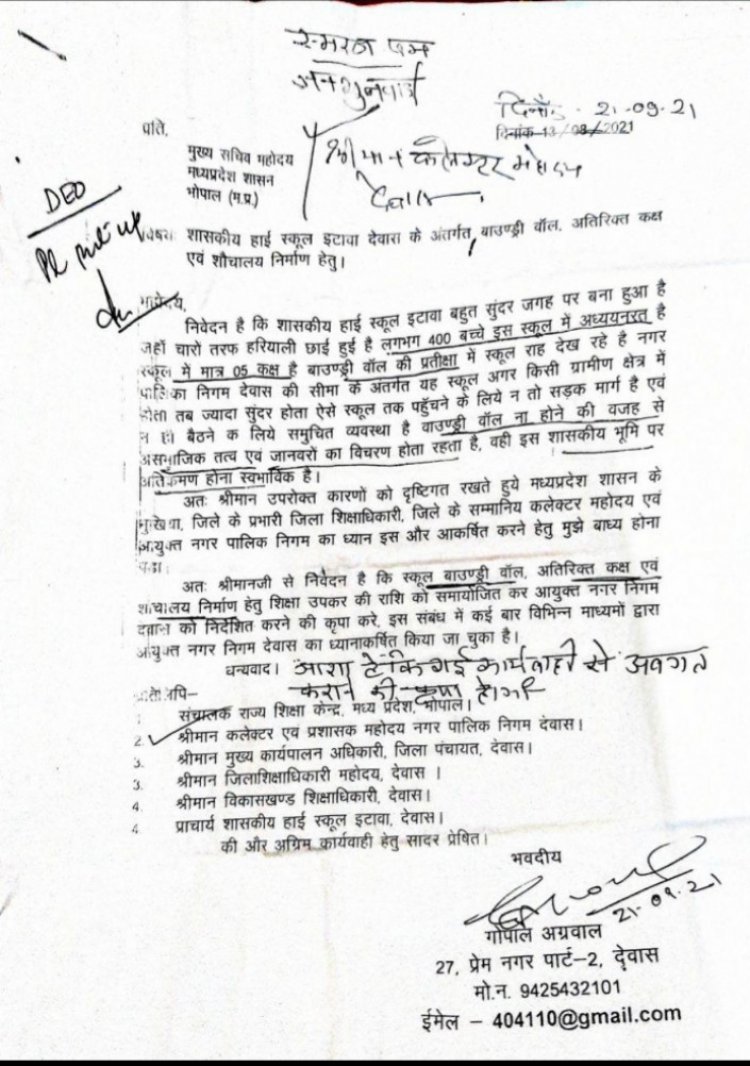 स्मरण पत्र
जनसुनवाई
दिनाँक - 21-09-21
दिनांक 13/08/2021
प्रति,
मुख्य सचिव महोदय
मध्यप्रदेश शासन
भोपाल (म.प्र.)
श्रीमान कलेक्टर महोदय
देवास
DEO
विषयः शासकीय हाई स्कूल इटावा देवास के अंतर्गत बाउण्ड्री वॉल, अतिरिक्त कक्ष
एवं शौचालय निर्माण हेतु।
महोदय,
निवेदन है कि शासकीय हाई स्कूल इटावा बहुत सुंदर जगह पर बना हुआ है
जहाँ चारो तरफ हरियाली छाई हुई है लगभग 400 बच्चे इस स्कूल में अध्ययनरत है
स्कूल में मात्र 05 कक्ष है बाउण्ड्री वॉल की प्रतीक्षा में स्कूल राह देख रहे है नगर
पालिका निगम देवास की सीमा के अंतर्गत यह स्कूल अगर किसी ग्रामीण क्षेत्र में
होता तब ज्यादा सुंदर होता ऐसे स्कूल तक पहुँचने के लिये न तो सड़क मार्ग है एवं
न ही बैठने क लिये समुचित व्यवस्था है बाउण्ड्री वॉल ना होने की वजह से
असमाजिक तत्व एवं जानवरों का विचरण होता रहता है, वही इस शासकीय भूमि पर
अतिक्रमण होना स्वभाविक है।
अतः श्रीमान उपरोक्त कारणों को दृष्टिगत रखते हुये मध्यप्रदेश शासन के
मुखिया, जिले के प्रभारी जिला शिक्षाधिकारी, जिले के सम्मानिय कलेक्टर महोदय एवं
आयुक्त नगर पालिक निगम का ध्यान इस और आकर्षित करने हेतु मुझे बाध्य होना
पडा।
अतः श्रीमानजी से निवेदन है कि स्कूल बाउण्ड्री वॉल, अतिरिक्त कक्ष एवं
शौचालय निर्माण हेतु शिक्षा उपकर की राशि को समायोजित कर आयुक्त नगर निगम
देवास को निर्देशित करने की कृपा करे, इस संबंध में कई बार विभिन्न माध्यमों द्वारा
आयुक्त नगर निगम देवास का ध्यानाकर्षित किया जा चुका है।
धन्यवाद। आशा है कि गई कार्यवाही से अवगत
कराने की कृपा होगी
प्रतिलिपि–
1. संचालक राज्य शिक्षा केन्द्र, मध्य प्रदेश, भोपाल।
2. श्रीमान कलेक्टर एवं प्रशासक महोदय नगर पालिक निगम देवास।
3. श्रीमान मुख्य कार्यपालन अधिकारी, जिला पंचायत, देवास।
3. श्रीमान जिलाशिक्षाधिकारी महोदय, देवास ।
4. श्रीमान विकासखण्ड शिक्षाधिकारी, देवास।
4. प्राचार्य शासकीय हाई स्कूल इटावा, देवास।
की और अग्रिम कार्यवाही हेतु सादर प्रेषित।
भवदीय
21-09-21
गोपाल अग्रवाल
27, प्रेम नगर पार्ट–2, देवास
मो.न. 9425432101
ईमेल – 404110@gmail.com